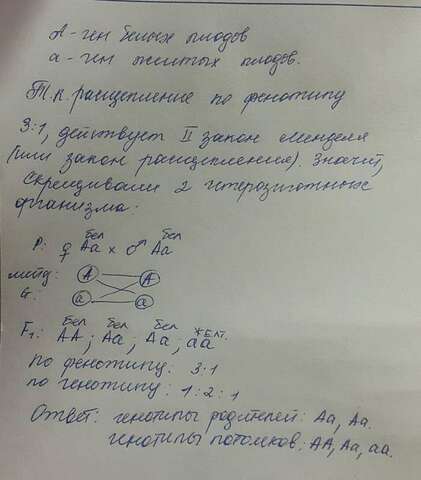 А - ген белых плодов
а - ген желтых плодов.
Т.к. расщепление по фенотипу
3:1, действует II закон Менделя
(или закон расщепления). Значит,
скрещивали 2 гетерозиготных
организма:
бел бел
P: ♀ Aa × ♂ Aa
мейоз: A A
G: a a
бел бел бел желт.
F₁: AA; Aa; Aa; aa
по фенотипу: 3:1
по генотипу: 1:2:1
Ответ: генотипы родителей: Aa, Aa.
генотипы потомков: AA, Aa, aa.